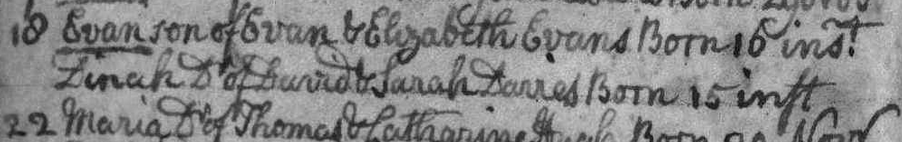 18 Evan son of Evan & Elizabeth Evans Born 16 inst.
Dinah Dr of David & Sarah Davies Born 15 inst
22 Maria Dr of Thomas & Catharine Born